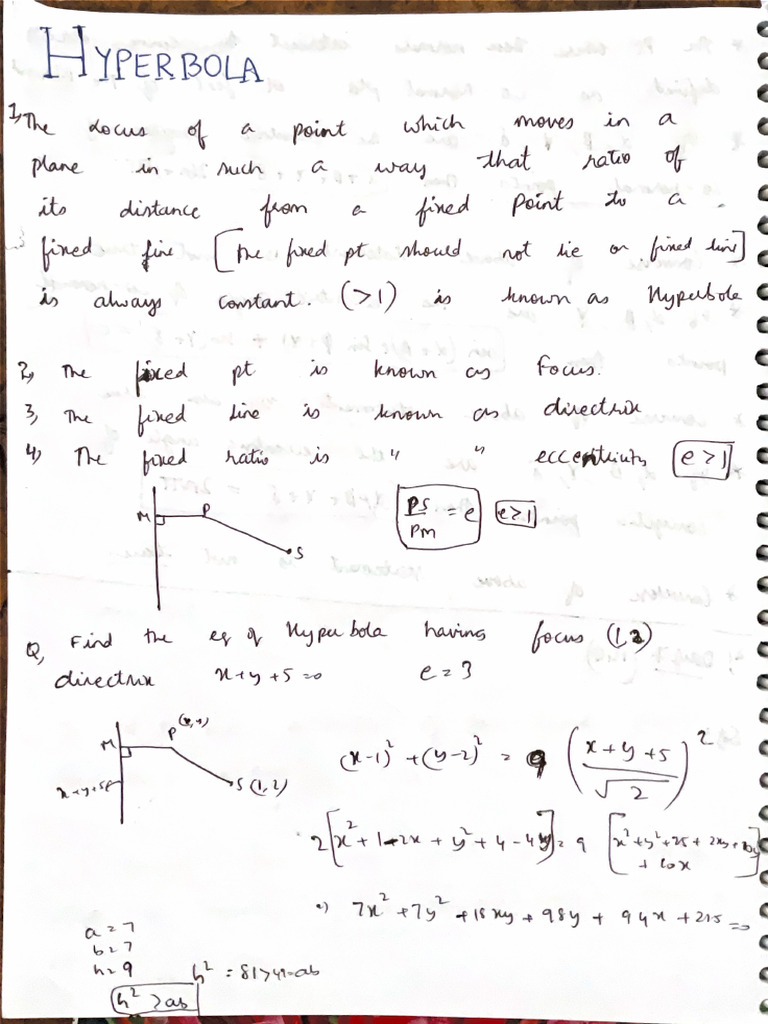 HYPERBOLA
1, The Locus of a point which moves in a
plane in such a way that ratio of
its distance from a fixed point to a
fixed line [The fixed pt should not lie on fixed line]
is always constant. (>1) is known as Hyperbola
2, The fixed pt is known as focus.
3, The fixed line is known as directrix
4, The fixed ratio is " " eccentricity e>1
M P S
PS/PM = e e>1
Q, Find the eq of Hyperbola having focus (1,2)
directrix x+y+5=0 e=3
M P S(1,2)
(x-1)² + (y-2)² = 9 ((x+y+5)/√2)²
2[x²+1-2x+y²+4-4y] = 9 [x²+y²+25+2xy+10y
+10x]
7x²+7y²+18xy+98y+94x+215=0
a=7
b=7
h=9 h² = 81>49=ab
h²>ab